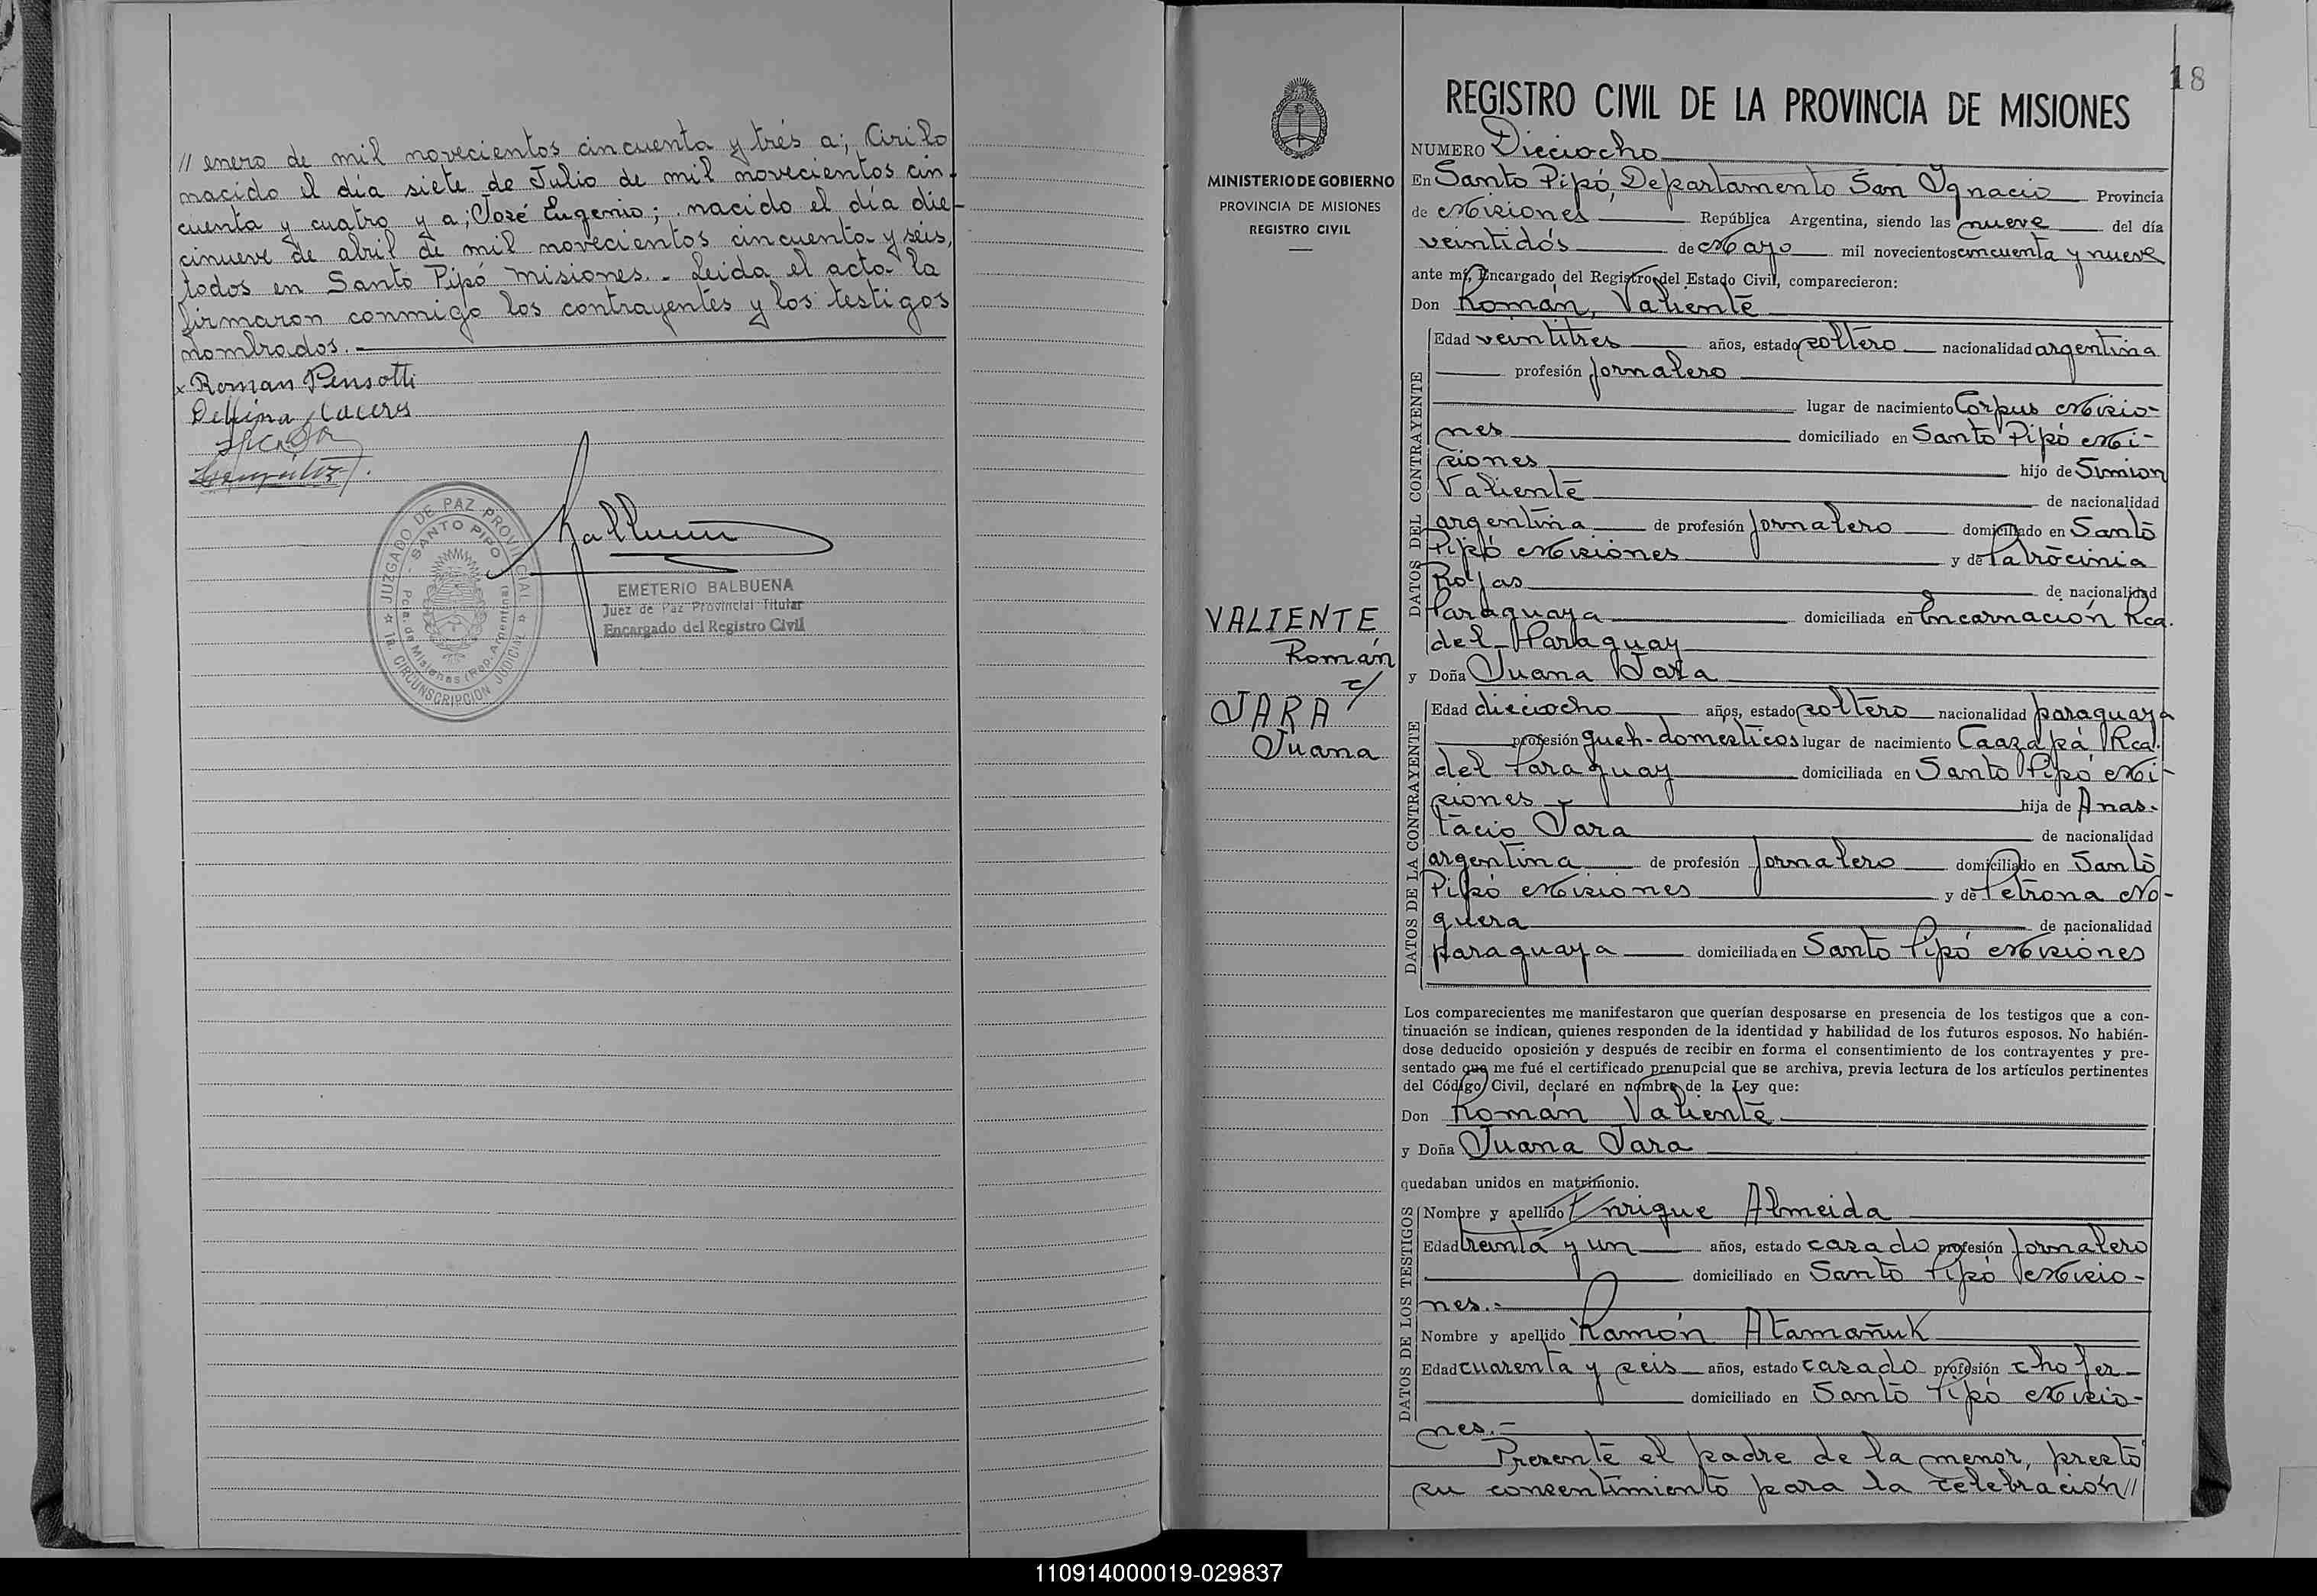 // enero de mil novecientos cincuenta y trés a; Cirilo
nacido el día siete de Julio de mil novecientos cin-
cuenta y cuatro y a; José Eugenio; nacido el día die-
cinueve de abril de mil novecientos cincuenta y seis,
todos en Santo Pipó Misiones.- Leida el acta la
firmaron conmigo los contrayentes y los testigos
nombrados.-
x Roman Pensotti
Delfina Caceres
JUZGADO DE PAZ PROVINCIAL
SANTO PIPO
Pcia. de Misiones (Rep. Argentina)
1a. CIRCUNSCRIPCION JUDICIAL
EMETERIO BALBUENA
Juez de Paz Provincial Titular
Encargado del Registro Civil
18
MINISTERIO DE GOBIERNO
PROVINCIA DE MISIONES
REGISTRO CIVIL
VALIENTE
Román
c/
JARA
Juana
REGISTRO CIVIL DE LA PROVINCIA DE MISIONES
NUMERO Dieciocho
En Santo Pipó, Departamento San Ignacio Provincia
de Misiones República Argentina, siendo las nueve del día
veintidós de Mayo mil novecientos cincuenta y nueve
ante mí, Encargado del Registro del Estado Civil, comparecieron:
Don Román, Valiente
DATOS DEL CONTRAYENTE
Edad veintitres años, estado soltero nacionalidad argentina
profesión Jornalero
lugar de nacimiento Corpus Misio-
nes domiciliado en Santo Pipó Mi-
siones hijo de Simion
Valiente de nacionalidad
argentina de profesión Jornalero domiciliado en Santo
Pipó Misiones y de Patrocinia
Rojas de nacionalidad
Paraguaya domiciliada en Encarnación Rca.
del Paraguay
y Doña Juana Jara
DATOS DE LA CONTRAYENTE
Edad dieciocho años, estado soltero nacionalidad paraguaya
profesión queh-domesticos lugar de nacimiento Caazapá Rca.
del Paraguay domiciliada en Santo Pipó Mi-
siones hija de Anas-
tacio Jara de nacionalidad
argentina de profesión Jornalero domiciliado en Santo
Pipó Misiones y de Petrona No-
guera de nacionalidad
paraguaya domiciliada en Santo Pipó Misiones
Los comparecientes me manifestaron que querían desposarse en presencia de los testigos que a con-
tinuación se indican, quienes responden de la identidad y habilidad de los futuros esposos. No habién-
dose deducido oposición y después de recibir en forma el consentimiento de los contrayentes y pre-
sentado que me fué el certificado prenupcial que se archiva, previa lectura de los artículos pertinentes
del Código Civil, declaré en nombre de la Ley que:
Don Román Valiente
y Doña Juana Jara
quedaban unidos en matrimonio.
DATOS DE LOS TESTIGOS
Nombre y apellido Enrique Almeida
Edad treinta y un años, estado casado profesión Jornalero
domiciliado en Santo Pipó Misio-
nes.-
Nombre y apellido Ramón Atamañuk
Edad cuarenta y seis años, estado casado profesión chofer
domiciliado en Santo Pipó Misio-
nes.-
Presente el padre de la menor, prestó
su consentimiento para la celebración//
110914000019-029837